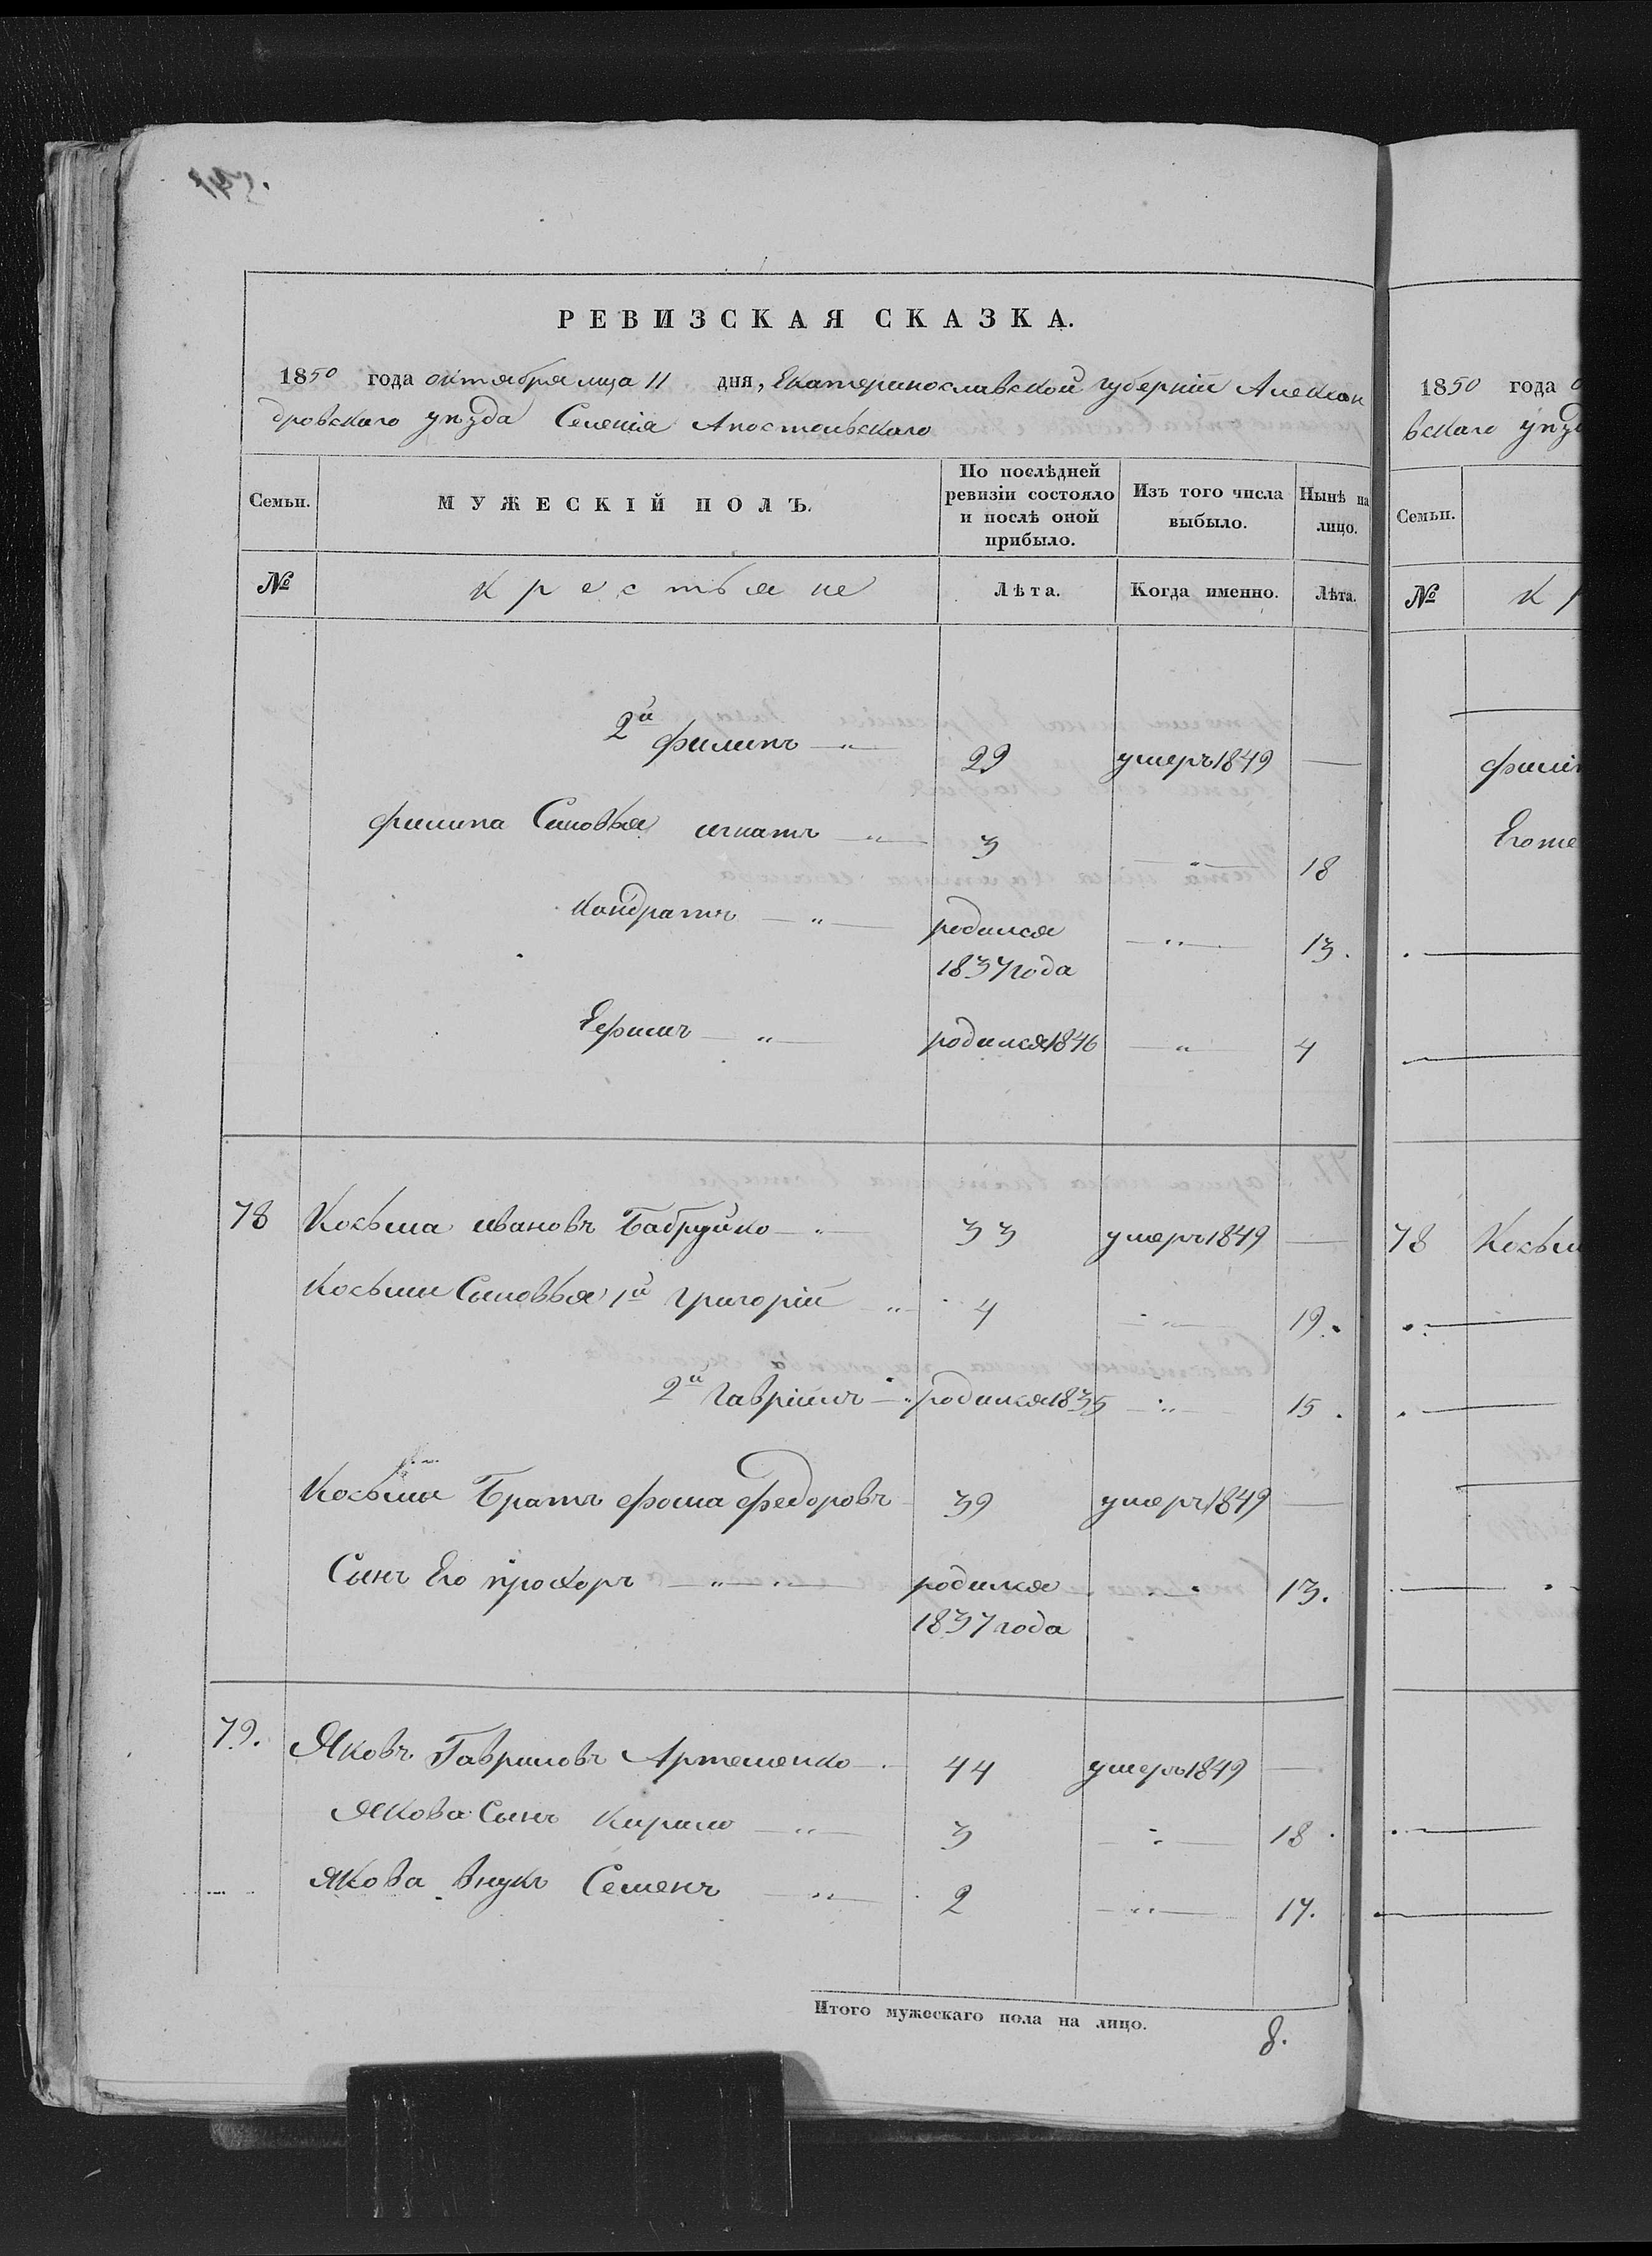 РЕВИЗСКАЯ СКАЗКА.
1850 года октября мца 11 дня, Екатеринославской губерніи Алексан
дровскаго уѣзда Селенія Апостольскаго
Семьи.
МУЖЕСКІЙ ПОЛЪ.
По послѣдней ревизіи состояло и послѣ оной прибыло.
Изъ того числа выбыло.
Нынѣ на лицо.
№ крестьяне Лѣта. Когда именно. Лѣта.
2й филипъ — " — 29 умеръ 1849 —
филипа Сыновья игнатъ — " — 3 — " — 18
Кондратъ — " — родился — " — 13.
1837 года
Ефимъ — " — родился 1846 — " — 4
78 Косьма ивановъ Бабруйко — " — 33 умеръ 1849 —
Косьмы Сыновья 1й григорій — " — 4 — " — 19.
2й гавріилъ — " родился 1835 — " — 15.
Косьмы Братъ фома федоровъ 39 умеръ 1849 —
Сынъ Его прохоръ — " — " — родился — " 13.
1837 года
79. Яковъ Гавриловъ Артеменко — 44 умеръ 1849 —
Якова Сынъ Кирило — " — 3 — " — 18.
Якова внукъ Семенъ — " — 2 — " — 17.
Итого мужескаго пола на лицо. 8.
1850 года
вскаго
Семьи.
№
78